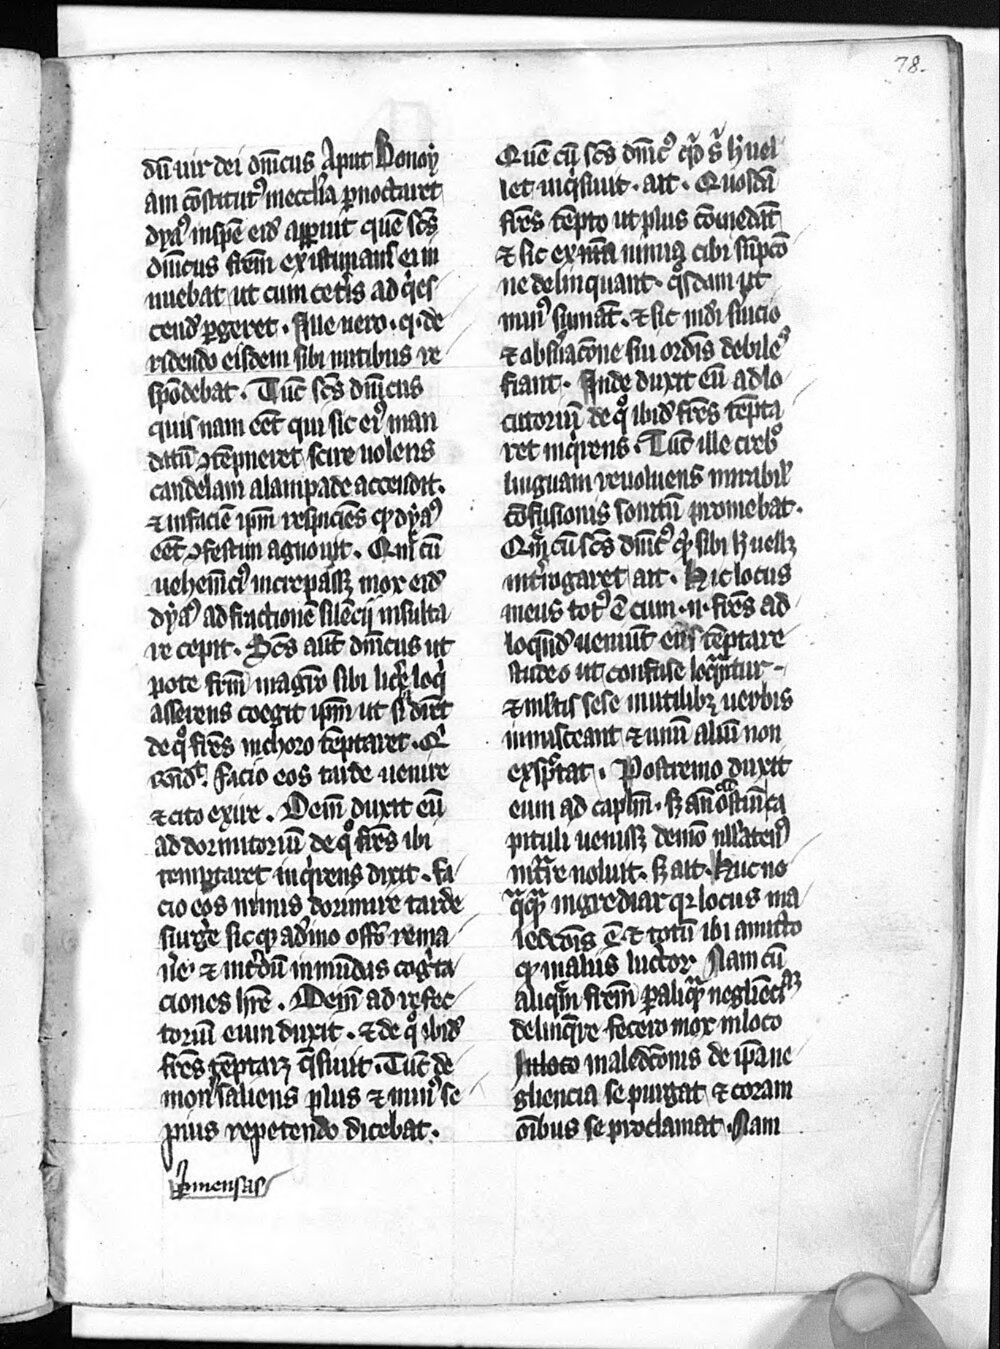 78.
dū uir dei dn̄icus Aput Bonoỹ
am cōstitut⁹ ineccl̄ia ꝑnoctaret
dya⁹ inspē eid⁹ apparuit quē sc̄s
dn̄icus frēm existimans ei in
nuebat ut cum cet̄is ad q̇es
cend⁹ ꝑgeret. Ille uero .q. de
ridendo eisdem sibi nutibus re
spōdebat. Tūc sc̄s dn̄icus
quis nam cēt qui sic ei⁹ man
datū ꝯtēpneret scire uolens
candelam alampade accendit.
⁊ infaciē ip̄m respiciēs qđ dya⁹
eēt ꝯfestim agnouit. Quē cū
uehemēci⁹ increpass; mox eid⁹
dya⁹ ad fractionē silēcij insulta
re cepit. Sc̄s aut̄ dn̄icus ut
pote frm̄ magr̄o sibi licēe loq̇
asserens coegit ip̄m ut s̄ diret
de qͦ frēs inchoro tēptaret. R̄
cend⁹t. facio eos tarde uenire
⁊ cito exire. Dein̄ duxit eū
ad dormitoriū de qͦ frēs ibi
temptaret inq̇rens dixit. fa
cio eos nimis dormire tarde
surg̊e sicq; ad dīno offō rema
n̄e ⁊ int̄dū inmūdas cogīta
ciones hr̄e. Dein̄ ad refec
toriū eum duxit. ⁊ de qͦ ibid⁹
frēs tēptar; q̄siuit. Tūc de
mon saliens plus ⁊ min⁹ se
pius repetendo dicebat.
ꝑ mensas
Quē cū sc̄s dn̄ic⁹ qͥd s̄ h̄ uel
let inq̇siuit. ait. Quosdā
frēs tēpto ut plus comedāt
⁊ sic ex nīa nimia cibi sūpcō
ne delinquant. q̊sdam ut
min⁹ sumāt. ⁊ sic in dī s̄uicio
⁊ obs̄uacōne sui ordīs debiles
fiant. Inde duxit eū ad lo
cutoriū de qͦ ibid⁹ frēs tēpta
ret inq̇rens. Tūc ille creb⁹
linguam reuoluens mirabil̄
ꝯfusionis sonitū promebat.
Quē cū sc̄s dn̄ic⁹ qͥd sibi h̄ uell;
int̄rogaret ait. Hic locus
meus tot⁹ ē cum .n. frēs ad
loquēd⁹ ueniūt eos tēptare
studeo ut confuse loquātur
⁊ mltis sese inutilib; uerbis
inmisceant ⁊ unū aliū non
exspectat. Postremo duxit
eum ad caplm̄. s; an̄ ostiū ca
pituli uenis; demō ull̄aten⁹
int̄re noluit. s; ait. Huc nō
q̄q̄ ingrediar qr locus ma
ledcōis ē ⁊ totū ibi amitto
qđ in aliis lucror. Nam cū
aliq̄m frēm ꝑ aliq̄ negliēciā
delinq̄re fecero mox in loco
Inloco maledcōnis de ip̄a ne
gliencia se purgat ⁊ coram
ōibus se proclamat. Nam